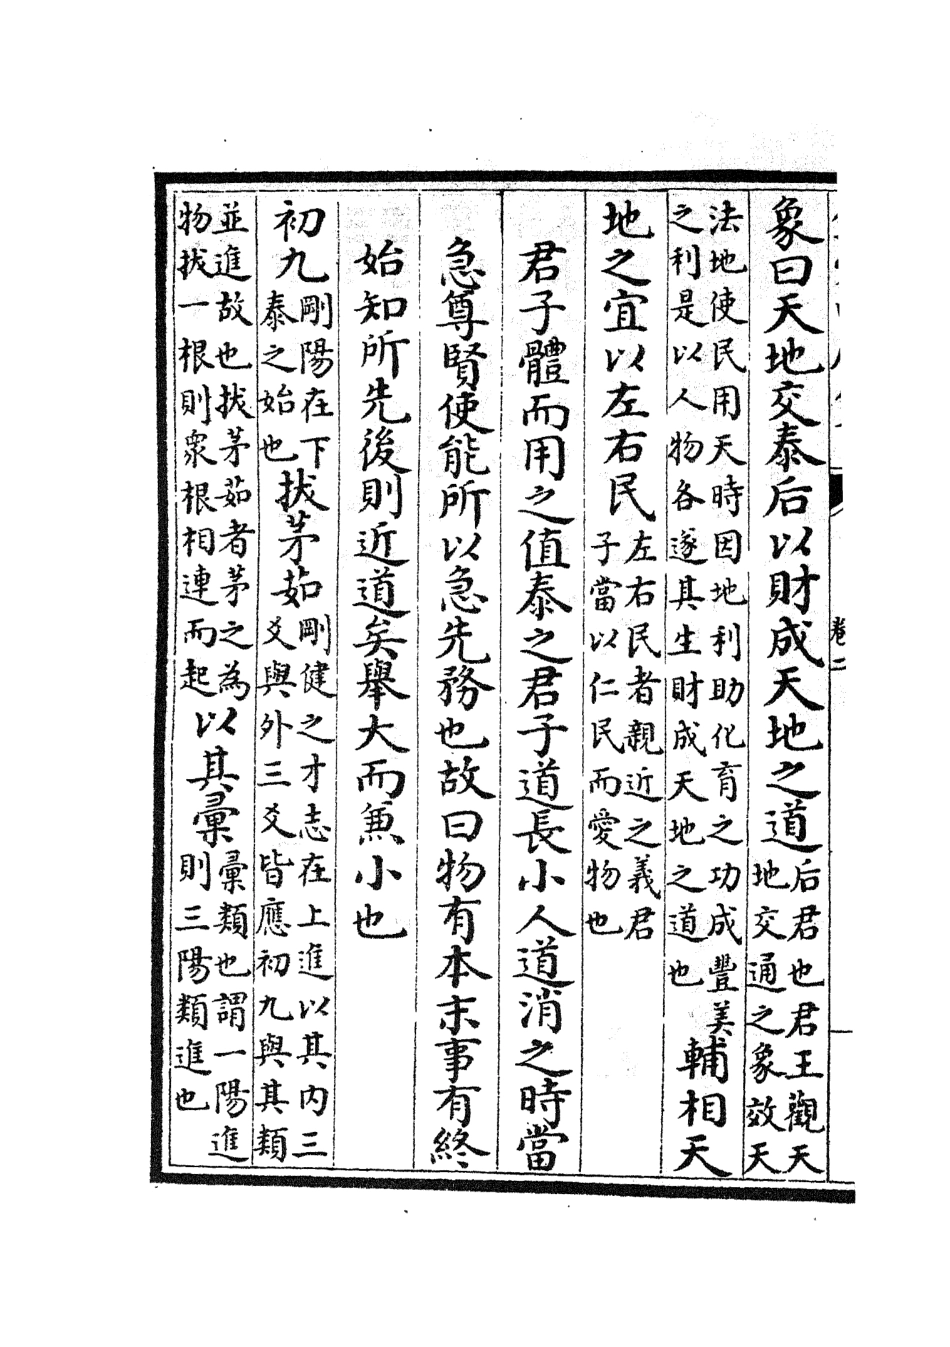 卷二
象曰天地交泰后以財成天地之道后君也君王觀天地交通之象效天
法地使民用天時因地利助化育之功成豐美之利是以人物各遂其生財成天地之道也輔相天
地之宜以左右民左右民者親近之義君子當以仁民而愛物也
君子體而用之值泰之君子道長小人道消之時當
急尊賢使能所以急先務也故曰物有本末事有終
始知所先後則近道矣舉大而兼小也
初九剛陽在下泰之始也拔茅茹剛健之才志在上進以其内三爻與外三爻皆應初九與其類
並進故也拔茅茹者茅之為物拔一根則衆根相連而起以其彙彙類也謂一陽進則三陽類進也